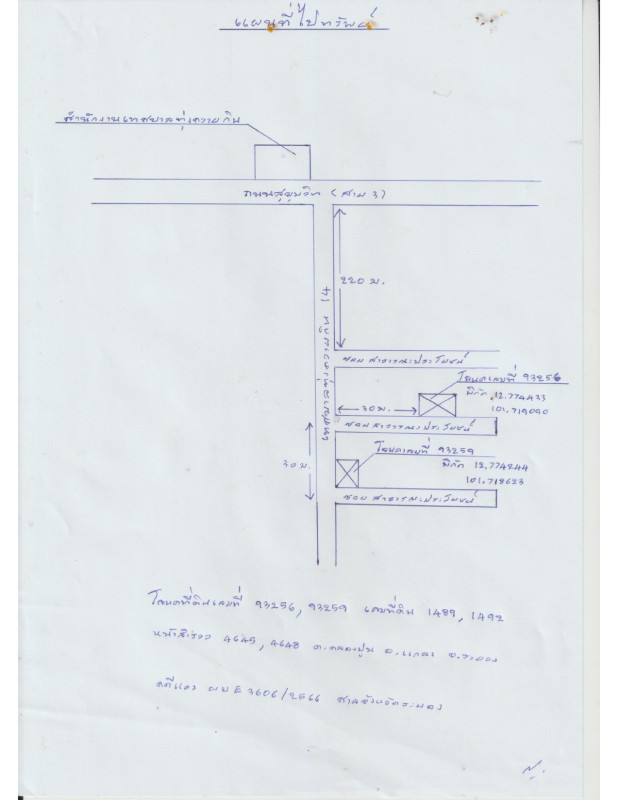 แผนที่ไปทรัพย์
สำนักงานเทศบาลทุ่งควายกิน
ถนนสุขุมวิท (สาย 3)
220 ม.
ถนนเทศบาลทุ่งควายกิน 14
ซอยสาธารณะประโยชน์
โฉนดเลขที่ 93256
พิกัด 12.774433
101.719090
30 ม.
ซอยสาธารณะประโยชน์
โฉนดเลขที่ 93259
พิกัด 12.774244
101.718623
30 ม.
ซอยสาธารณะประโยชน์
โฉนดที่ดินเลขที่ 93256, 93259 เลขที่ดิน 1489, 1492
หน้าสำรวจ 4645, 4648 ต.คลองปูน อ.แกลง จ.ระยอง
คดีแดง ผบE 3606/2566 ศาลจังหวัดระยอง